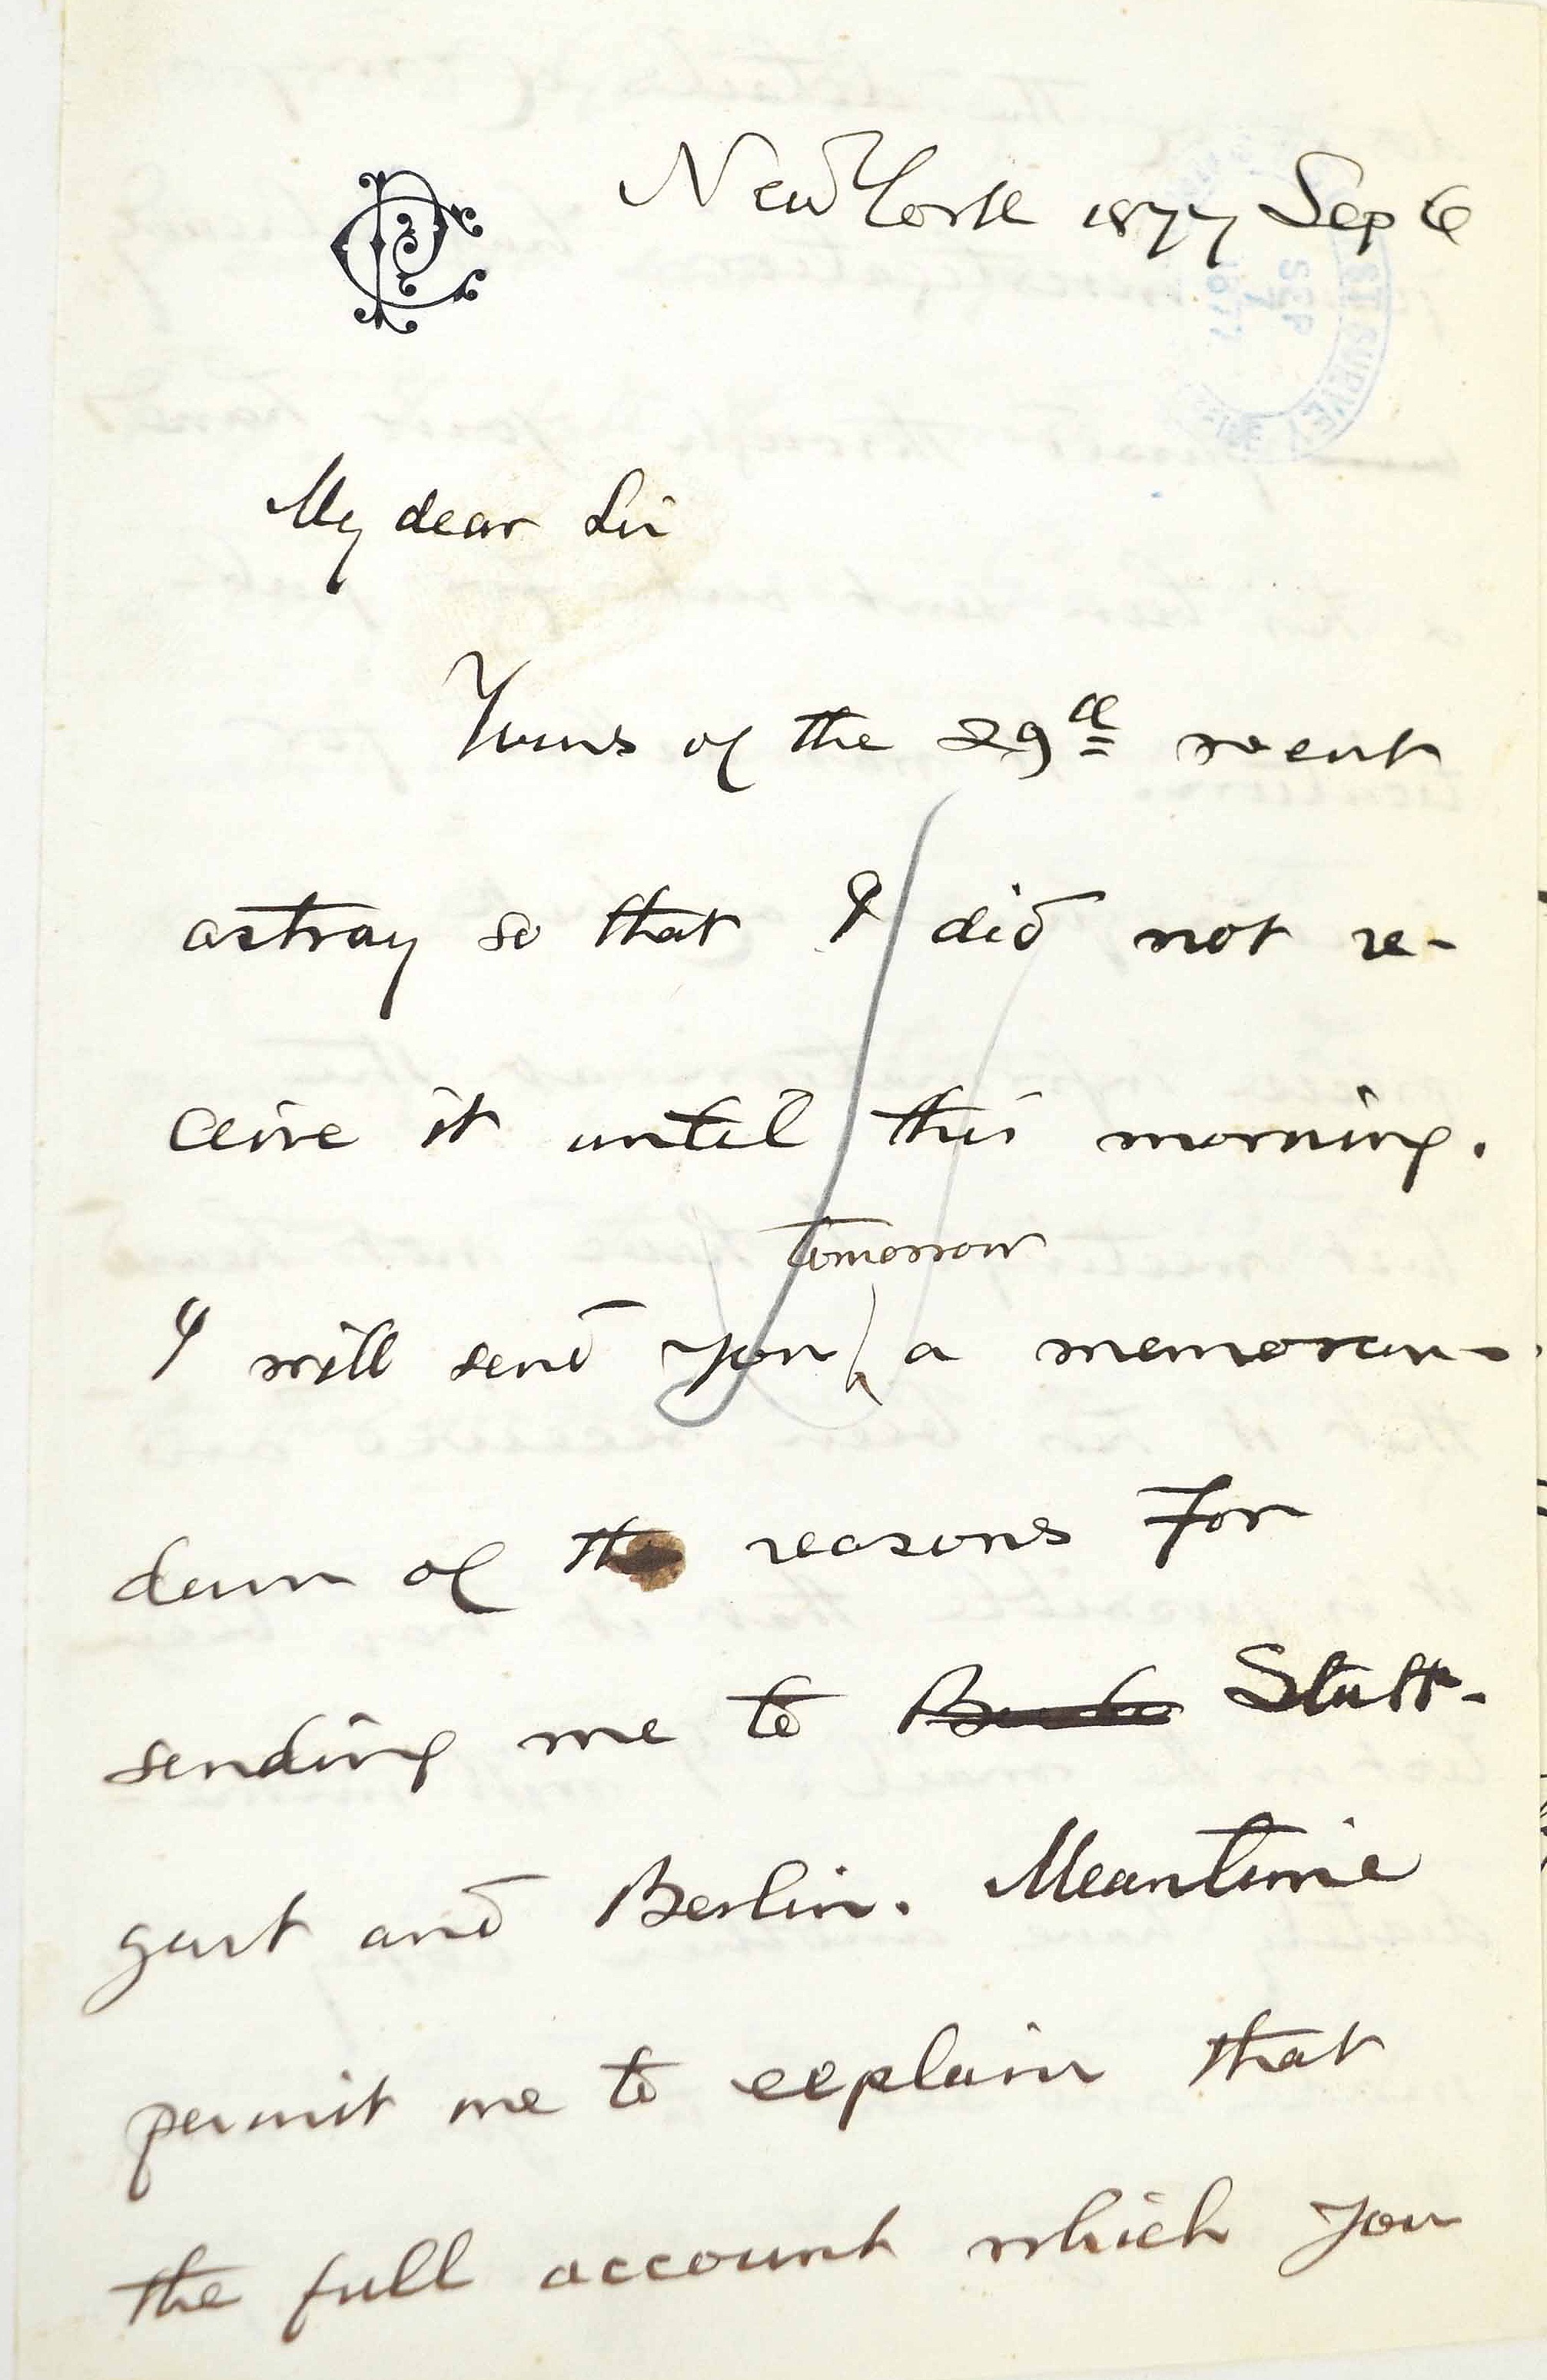 New York 1877 Sep 6
My dear Sir
Yours of the 29th went
astray so that I did not re-
ceive it until this morning.
tomorrow
I will send you a memoran-
dum of the reasons for
sending me to Stutt-
gart and Berlin. Meantime
permit me to explain that
the full account which you